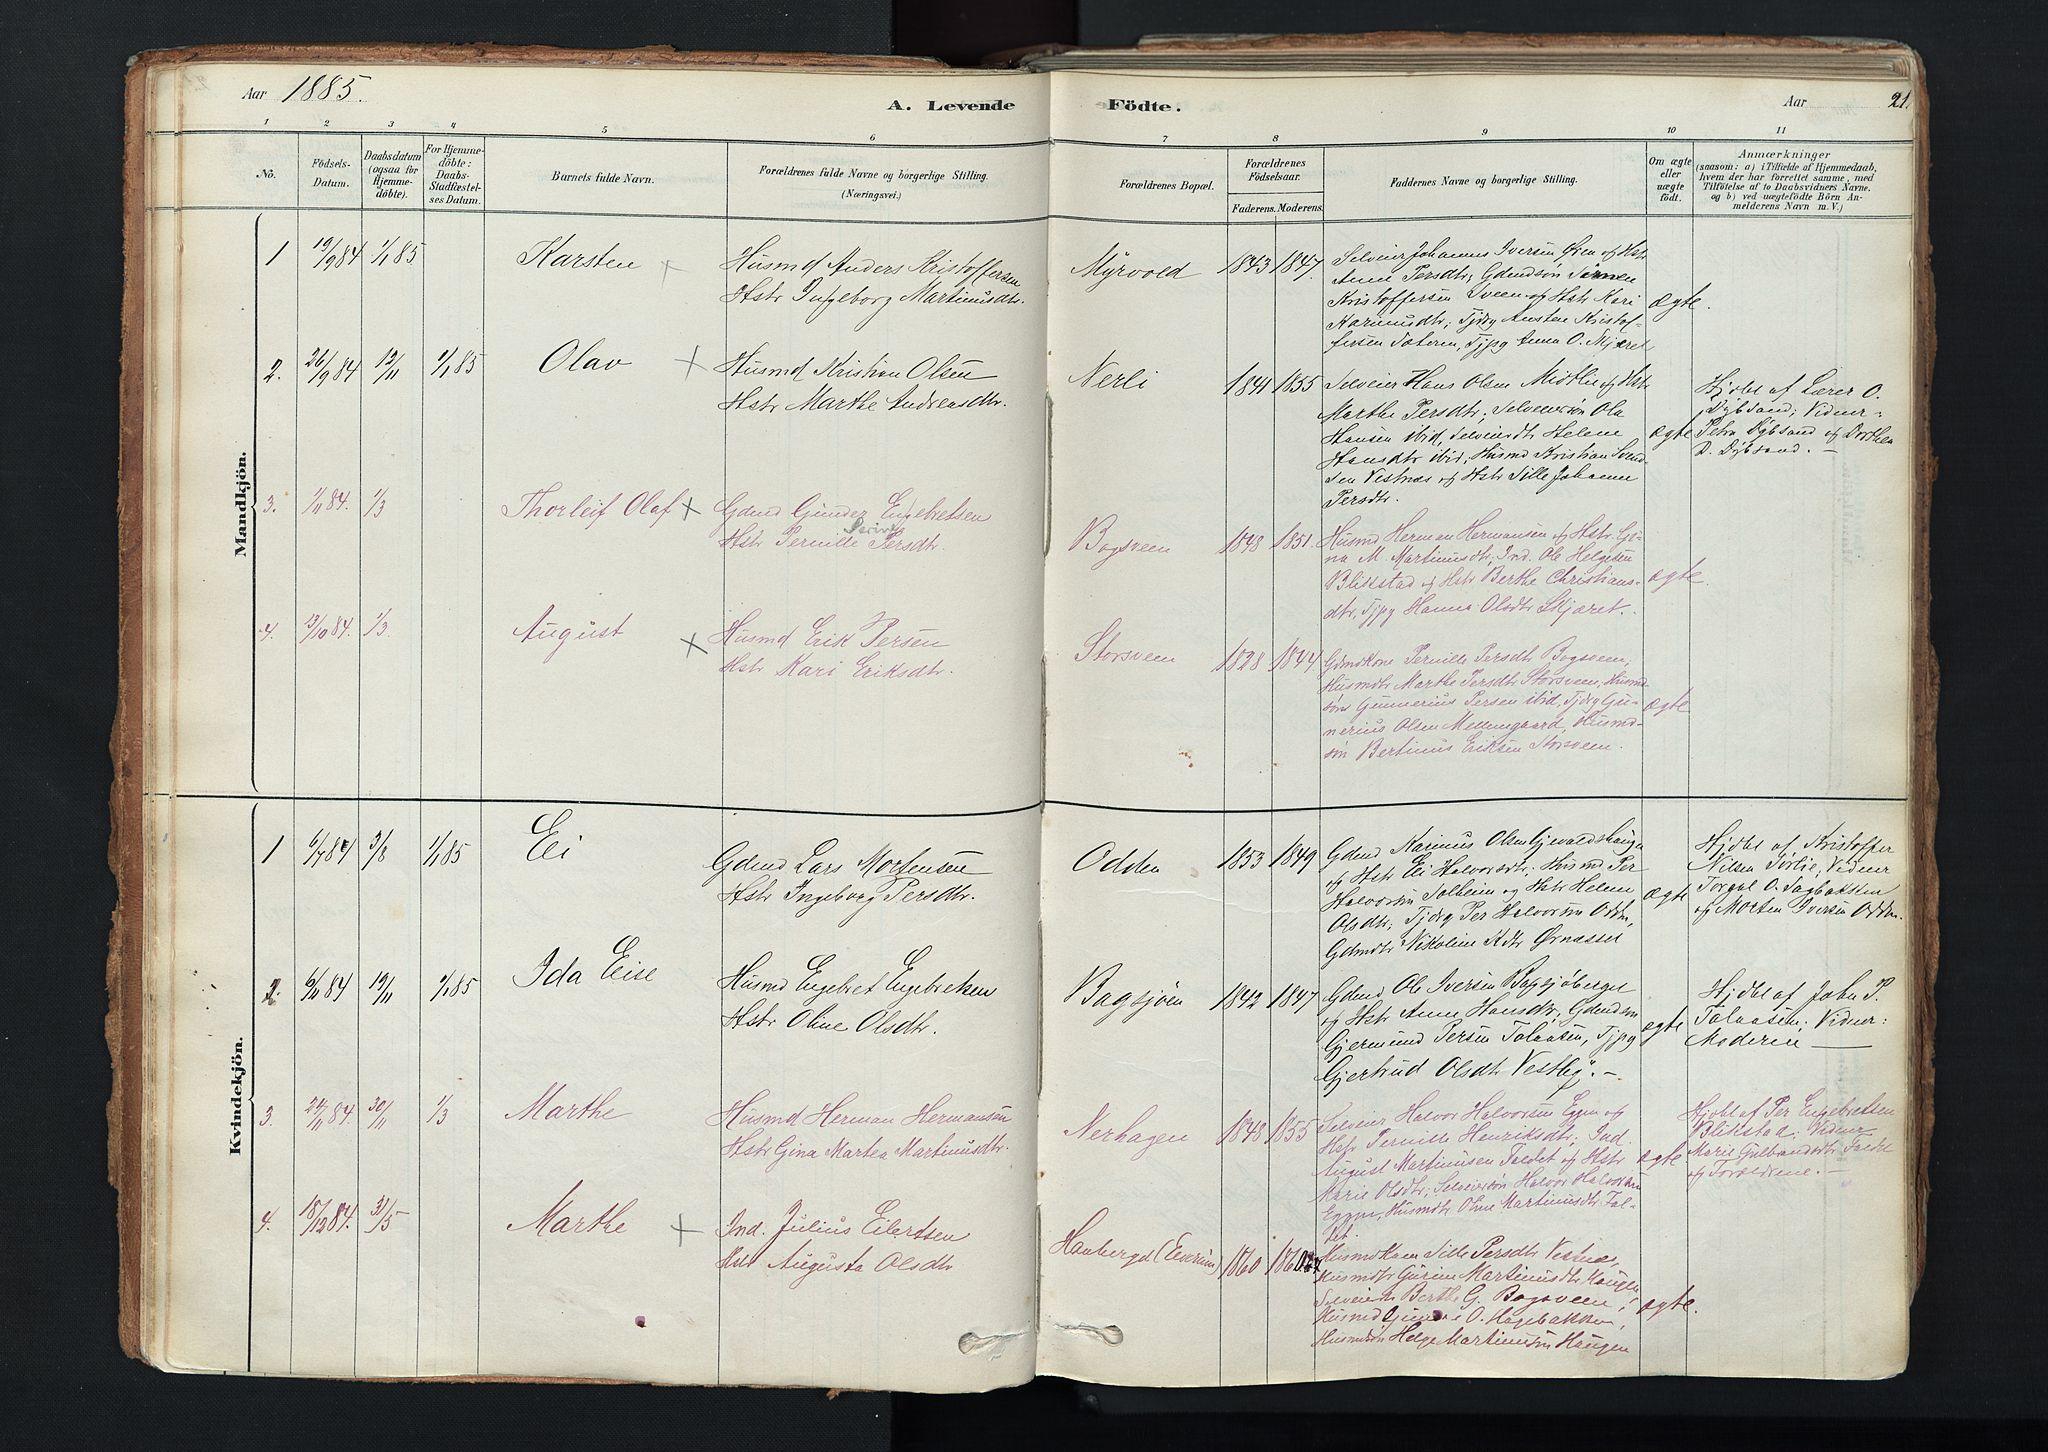 Aar 1885.
A. Levende Födte.
Aar 21.
1 2 3 4 5 6 7 8 9 10 11
No.
Födsels-
Datum.
Daabsdatum
(ogsaa for
Hjemme-
döbte).
For Hjemme-
döbte:
Daabs-
Stadfæstel-
ses Datum.
Barnets fulde Navn.
Forældrenes fulde Navne og borgerlige Stilling.
(Næringsvei.)
Forældrenes Bopæl.
Forældrenes
Födselsaar.
Faderens. Moderens.
Faddernes Navne og borgerlige Stilling.
Om ægte
eller
uægte
födt.
Anmærkninger
(saasom: a) i Tilfælde af Hjemmedaab,
hvem der har forrettet samme, med
Tilföielse af to Daabsvidners Navne.
og b) ved uægtefödte Börn An-
melderens Navn m. V.)
Mandkjön.
1 19/9 84 1/1 85 Karsten
Husmd Anders Kristoffersen
Hstr Ingeborg Martinusdtr.
Myrvold 1843 1847.
Selveier Johannes Iversen Øien og Hstr
Anne Persdtr; Gdmdsøn Simen
Kristoffersen Sveen og Hstr Kari
Karinusdtr; Tjdrg Austen Kristof-
fersen Sæteren, Tjpg Anna O. Skjæret
ægte.
2. 26/9 84 12/11 1/1 85 Olav
Husmd Kristian Olsen
Hstr Marthe Andreasdtr.
Nerli 1841 1855
Selveier Hans Olsen Midtlie og Hstr
Marthe Persdtr; Selveiersøn Ola
Hansen ibid, Selveierdtr Helene
Hansdtr ibid; Husmd Kristian Svend-
sen Vestnæs og Hstr Sille Johanne
Persdtr.
ægte
Hjdbt af Lærer O.
Dybsand; Vidner:
Petra Dybsand og Dorthea
D. Dybsand. —
3. 1/11 84. 1/3 Thorleif Olaf
Gdmd Gunder Engebretsen
Hstr Pernille Persdtr.
Bogsveen 1848 1851.
Husmd Herman Hermansen og Hstr Gi-
na M. Martinusdtr; Ind. Ole Helgesen
Blikstad og Hstr Berthe Christians-
dtr, Tjpg Hanna Olsdtr Skjæret.
ægte.
4. 13/10 84. 1/3 August
Husmd Erik Persen
Hstr Kari Eriksdtr.
Storsveen 1828 1844
Gdmdkone Pernille Persdtr Bogsveen,
Husmdtr Marthe Persdtr Storsveen, Husmd-
søn Gunnerius Persen ibid, Tjdrg Gu-
nerius Olsen Mellemgaard, Husmd-
søn Bertinus Eriksen Storsveen.
ægte
Kvindekjön.
1 6/7 84 3/8 1/1 85 Eli
Gdmd Lars Mortensen
Hstr Ingeborg Persdtr.
Odden 1853 1849
Gdmd Karinus Olsen Gjevaldshaugen
og Hstr Eli Halvorsdtr; Husmd Per
Halvorsen Solheim og Hstr Helene
Olsdtr; Tjdrg Per Halvorsen Odden,
Gdmdtr Nikoline Kdtr Ørnæsset
ægte
Hjdbt af Kristoffer
Nilsen Sørlie, Vidner
Torgal O. Sagbakken
og Morten Iversen Odden.
2. 6/11 84 19/11 1/1 85 Ida Elise
Husmd Engebret Engebretsen
Hstr Oline Olsdtr.
Bagsjøen 1842 1847
Gdmd Ole Iversen Bagsjøberget
og Hstr Anne Hansdtr, Gdmdsøn
Gjermund Persen Tolaasen, Tjpg
Gjertrud Olsdtr Vestby. —
ægte
Hjdbt af John P.
Tolaasen; Vidner:
Moderen —
3. 24/11 84. 30/11 1/3 Marthe
Husmd Herman Hermansen
Hstr Gina Martea Martinusdtr.
Nerhagen 1848 1855
Selveier Halvor Halvorsen Eggen og
Hstr Pernille Henriksdtr; Ind.
August Martinusen Faldet og Hstr
Marie Olsdtr; Selveiersøn Halvor Halvorsen
Eggen, Husmdtr Oline Martinusdtr Fal-
det.
ægte
Hjdbt af Per Engebretsen
Blikstad; Vidner
Marie Gulbrandsdtr Faldet
og Forældrene. —
4. 18/12 84. 31/5 Marthe
Ind. Julius Eilertsen
Hstr Augusta Olsdtr
Hanberget (Elverum) 1860 1860
Husmdkone Sille Persdtr Vestnæs,
Husmdtr Gurine Martinusdtr Haugen
Selveierdtr Berthe G. Bogsveen;
Husmd O. Hagebakken,
Husmdsøn Helge Martinusen Haugen
ægte.